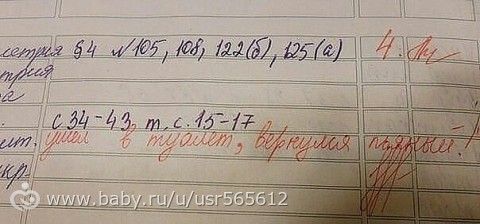 метрия §4 №105, 108, 122(б), 125(а) 4.
трия
а
с.34-43 т, с. 15-17
ушел в туалет, вернулся пьяный!
www.baby.ru/u/usr565612